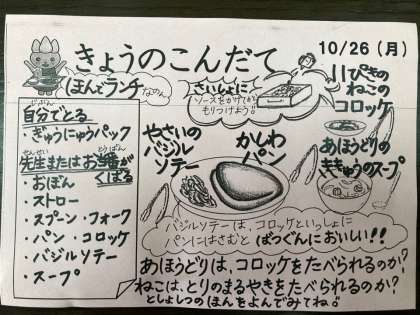 きょうのこんだて
10/26（月）
ほんでランチ
なのん
さいしょに
ソースをかけてから
もりつけよう！
11ぴきの
ねこの
コロッケ
あほうどりの
ききゅうのスープ
やさいの
バジル
ソテー
かしわ
パン
じぶん
自分でとる
・ぎゅうにゅうパック
せんせい とうばん
先生またはお当番が
くばる
・おぼん
・ストロー
・スプーン・フォーク
・パン・コロッケ
・バジルソテー
・スープ
バジルソテーは、コロッケといっしょに
パンにはさむと ばつぐんにおいしい!!
あほうどりは、コロッケをたべられるのか?
ねこは、とりのまるやきをたべられるのか?
としょしつのほんをよんでみてね♪